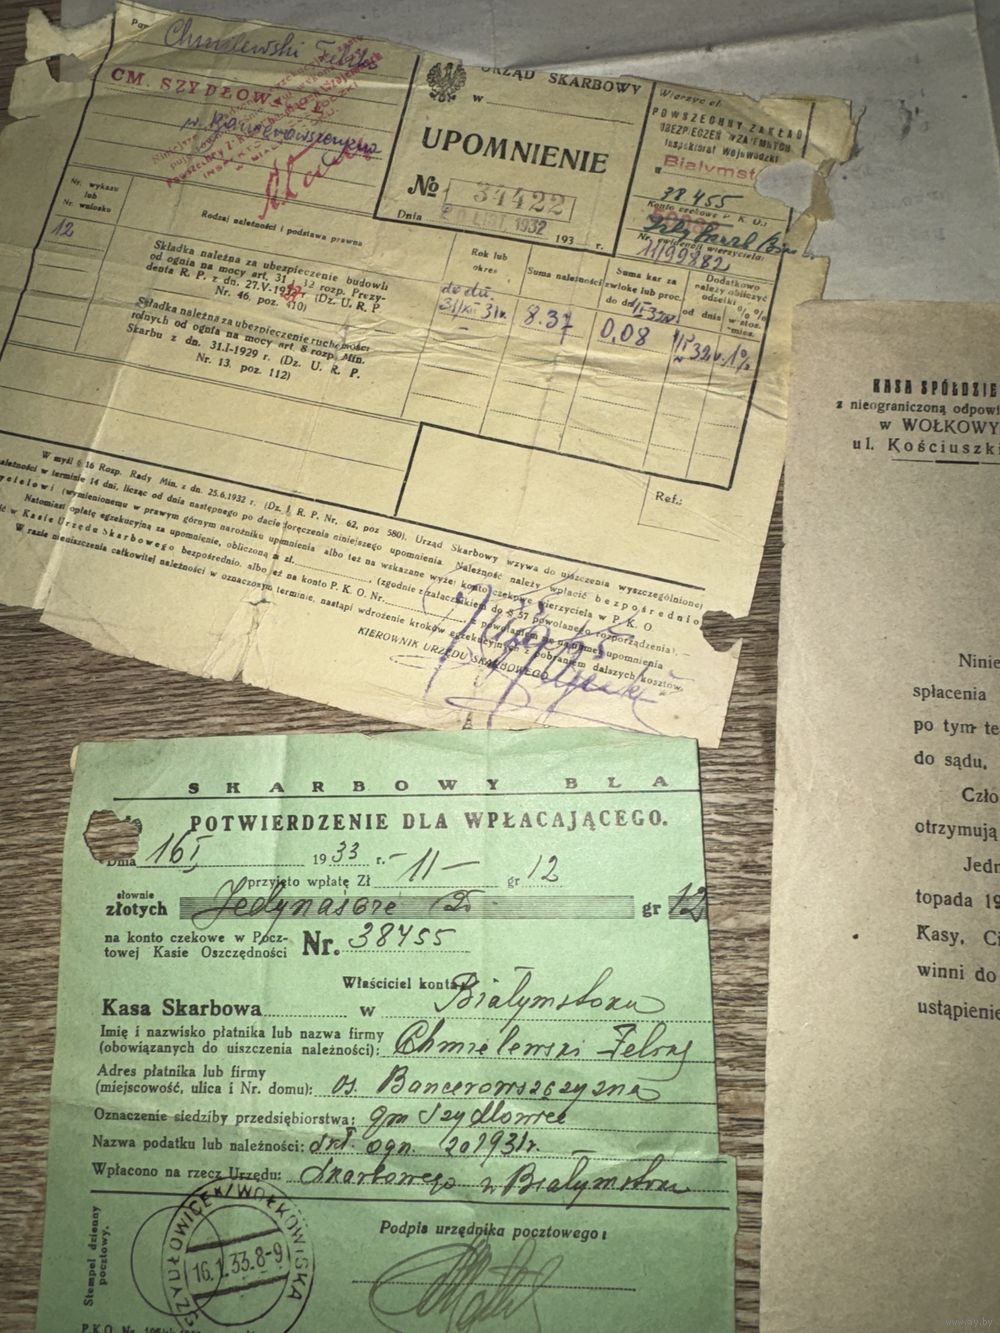 Chmielewski Feliks
GM. SZYDŁOWICE
URZĄD SKARBOWY
w
UPOMNIENIE
No 34422
Dnia 20 LIST. 1932 193 r.
Wierzyciel:
POWSZECHNY ZAKŁAD
UBEZPIECZEŃ WZAJEMNYCH
Inspektorat Wojewódzki
w Białymst
38455
Konto czekowe P. K. O.:
Nr. ewidencji wierzyciela:
11/99882
Nr. wykazu
lub
Nr. wniosku
Rodzaj należności i podstawa prawna
Rok lub
okres
Suma należności
Suma kar za
zwłokę lub proc.
do dn.
Dodatkowo
należy obliczyć
odsetki %%
od dnia w stos.
mies.
12
Składka należna za ubezpieczenie budowli
od ognia na mocy art. 31 rozp. Prezy-
denta R. P. z dn. 27.V-1927 r. (Dz. U. R. P.
Nr. 46, poz. 410)
8.37
0,08
1%
Składka należna za ubezpieczenie ruchomości
rolnych od ognia na mocy art. 8 rozp. Min.
Skarbu z dn. 31.I-1929 r. (Dz. U. R. P.
Nr. 13, poz. 112)
Ref.:
W myśl § 16 Rozp. Rady Min. z dn. 25.6.1932 r. (Dz. U. R. P. Nr. 62, poz 580). Urząd Skarbowy wzywa do uiszczenia wyszczególnionej
należności w terminie 14 dni, licząc od dnia następnego po dacie doręczenia niniejszego upomnienia. Należność należy wpłacić bezpośrednio
(wymienionemu w prawym górnym narożniku upomnienia albo też na wskazane wyżej konto czekowe wierzyciela w P. K. O
Natomiast opłatę egzekucyjną za upomnienie, obliczoną zł. (zgodnie z załącznikiem do § 57 powołanego rozporządzenia),
w Kasie Urzędu Skarbowego bezpośrednio, albo też na konto P. K. O. Nr. z powołaniem się na numer upomnienia
W razie nieuiszczenia całkowitej należności w oznaczonym terminie, nastąpi wdrożenie kroków egzekucyjnych z pobraniem dalszych kosztów.
KIEROWNIK URZĘDU SKARBOWEGO
SKARBOWY BLA
POTWIERDZENIE DLA WPŁACAJĄCEGO.
Dnia 16 I 1933 r.
przyjęto wpłatę Zł -11- gr 12
słownie
złotych Jedynaście gr 12
na konto czekowe w Pocz-
towej Kasie Oszczędności Nr. 38455
Właściciel konta:
Kasa Skarbowa w Białymstoku
Imię i nazwisko płatnika lub nazwa firmy
(obowiązanych do uiszczenia należności): Chmielewski Feliks
Adres płatnika lub firmy
(miejscowość, ulica i Nr. domu): os. Bancerowszczyzna
Oznaczenie siedziby przedsiębiorstwa: gm Szydłowice
Nazwa podatku lub należności: skł. ogn. za 1931 r.
Wpłacono na rzecz Urzędu: Skarbowego w Białymstoku
Stempel dzienny
pocztowy.
SZYDŁOWICE K/WOŁKOWISKA
16.1.33.8-9
Podpis urzędnika pocztowego:
KASA SPÓŁDZIE
z nieograniczoną odpowi
w WOŁKOWY
ul. Kościuszki
Ninie
spłacenia
po tym te
do sądu.
Czło
otrzymują
Jedn
topada 19
Kasy, Ci
winni do
ustąpienie
www.ay.by